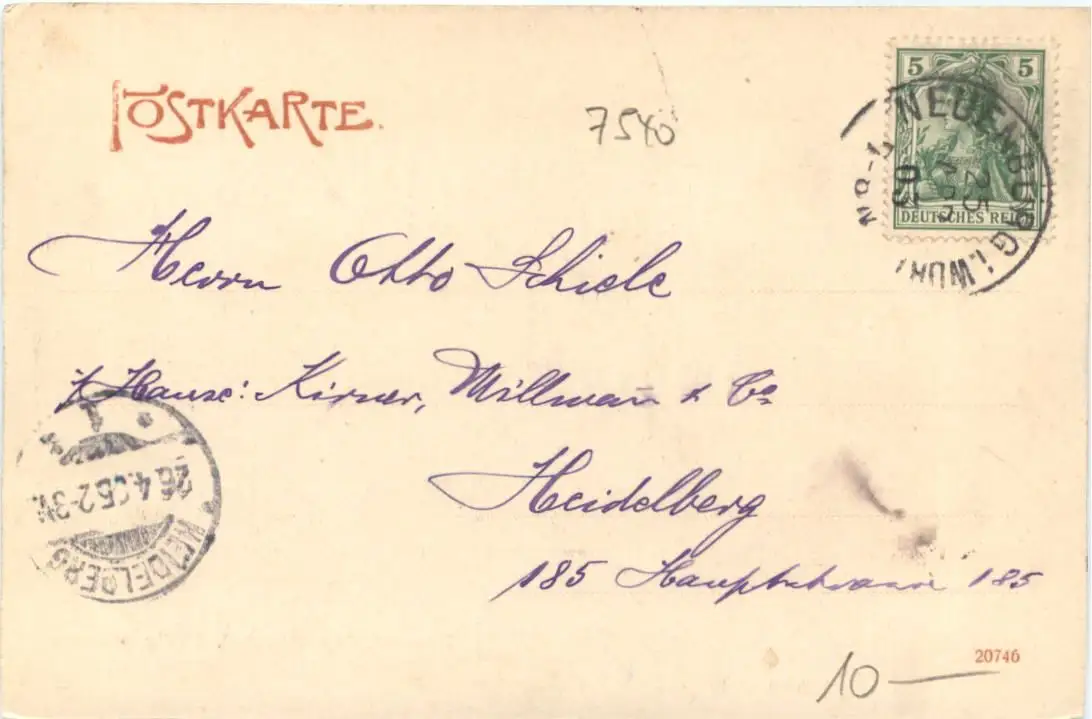 POSTKARTE.
7540
5 5
DEUTSCHES REICH
NEUENBÜRG i. WÜRT
25
APR
05
NR.-1
Herrn Otto Schiele
i/ Hause: Kirner, Willmann & Co
Heidelberg
185 Hauptstrasse 185
HEIDELBERG
26.4.05.2-3N.
1
20746
10—